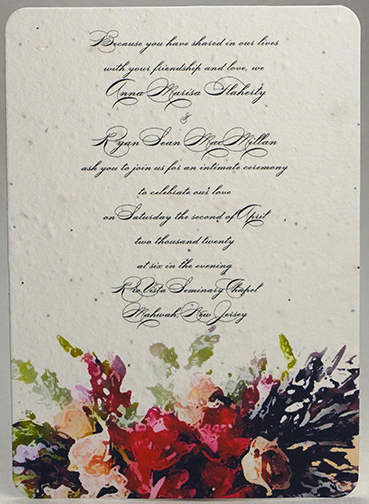 Because you have shared in our lives
with your friendship and love, we
Anna Marisa Flaherty
&
Ryan Sean MacMillan
ask you to join us for an intimate ceremony
to celebrate our love
on Saturday the second of April
two thousand twenty
at six in the evening
Vista Seminary Chapel
Mahwah, New Jersey